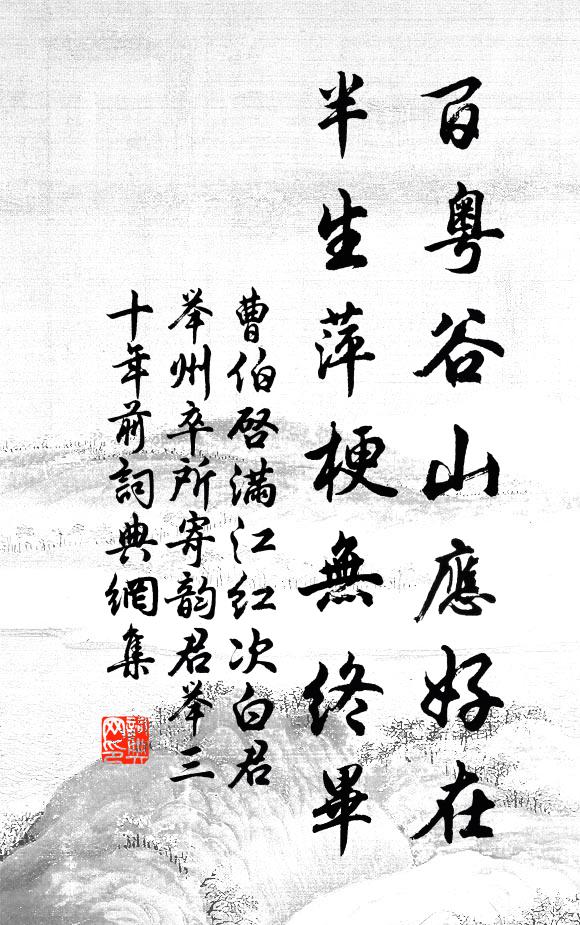 百粵谷山應好在
半生萍梗無終畢
曹伯啓滿江红次白君
举州卒所寄韵君举三
十年前詞典網集